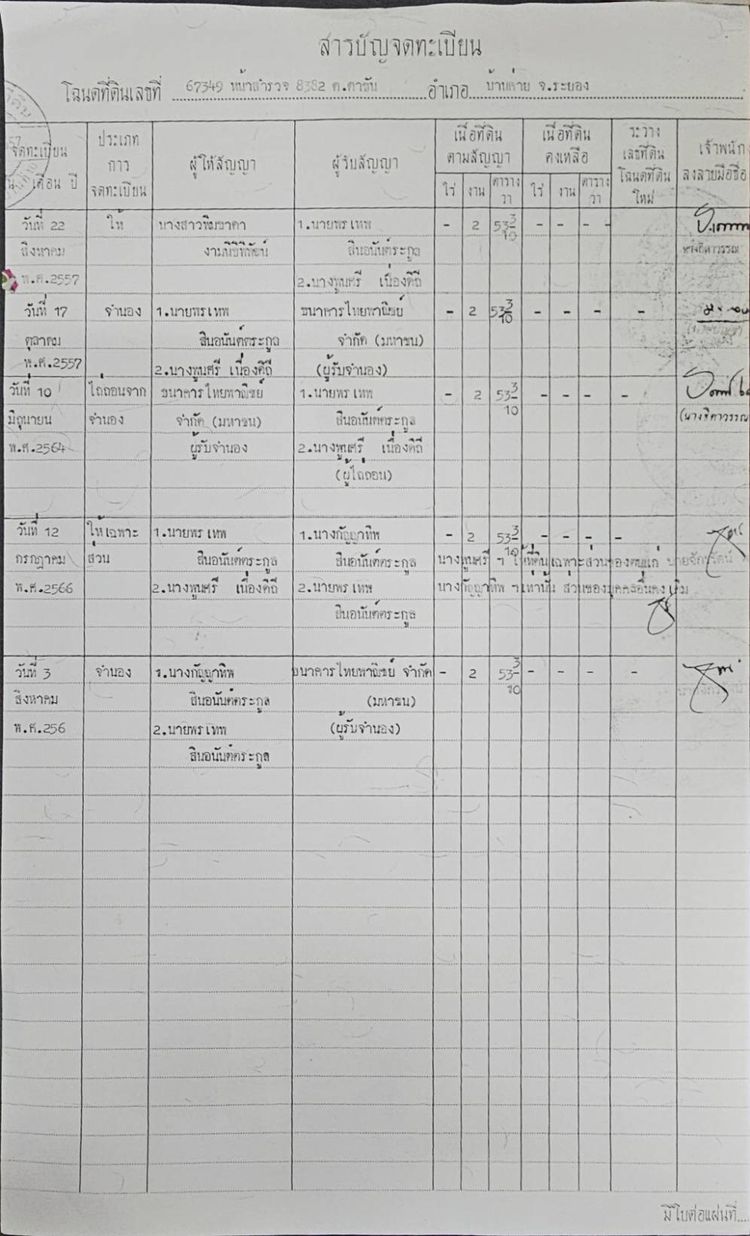 สารบัญจดทะเบียน
โฉนดที่ดินเลขที่ 67349 หน้าสำรวจ 8382 ต.ตาขัน อำเภอ บ้านค่าย จ.ระยอง
จดทะเบียน
เดือน ปี
ประเภท
การ
จดทะเบียน
ผู้ให้สัญญา
ผู้รับสัญญา
เนื้อที่ดิน
ตามสัญญา
ไร่ งาน ตาราง
วา
เนื้อที่ดิน
คงเหลือ
ไร่ งาน ตาราง
วา
ระวาง
เลขที่ดิน
โฉนดที่ดิน
ใหม่
เจ้าพนัก
ลงลายมือชื่อ
วันที่ 22 ให้ นางสาวพิมชาดา 1.นายพรเทพ - 2 53 3/10 - - -
สิงหาคม งามพิธีพิพัฒน์ สินอนันต์ตระกูล
พ.ศ.2557 2.นางพูนศรี เนื่องคิถี
วันที่ 17 จำนอง 1.นายพรเทพ ธนาคารไทยพาณิชย์ - 2 53 3/10 - - - -
ตุลาคม สินอนันต์ตระกูล จำกัด (มหาชน)
พ.ศ.2557 2.นางพูนศรี เนื่องคิถี (ผู้รับจำนอง)
วันที่ 10 ไถ่ถอนจาก ธนาคารไทยพาณิชย์ 1.นายพรเทพ - 2 53 3/10 - - - -
มิถุนายน จำนอง จำกัด (มหาชน) สินอนันต์ตระกูล
พ.ศ.2564 ผู้รับจำนอง 2.นางพูนศรี เนื่องคิถี
(ผู้ไถ่ถอน)
วันที่ 12 ให้เฉพาะ 1.นายพรเทพ 1.นางกัญญาทิพ - 2 53 3/10 - - -
กรกฎาคม ส่วน สินอนันต์ตระกูล สินอนันต์ตระกูล นางพูนศรี ฯ ให้ที่ดินเฉพาะส่วนของตนแก่
พ.ศ.2566 2.นางพูนศรี เนื่องคิถี 2.นายพรเทพ นางกัญญาทิพ ฯ เท่านั้น ส่วนของบุคคลอื่นคงเดิม
สินอนันต์ตระกูล
วันที่ 3 จำนอง 1.นางกัญญาทิพ ธนาคารไทยพาณิชย์ จำกัด - 2 53 3/10 - - - -
สิงหาคม สินอนันต์ตระกูล (มหาชน)
พ.ศ.256 2.นายพรเทพ (ผู้รับจำนอง)
สินอนันต์ตระกูล
มีใบต่อแผ่นที่